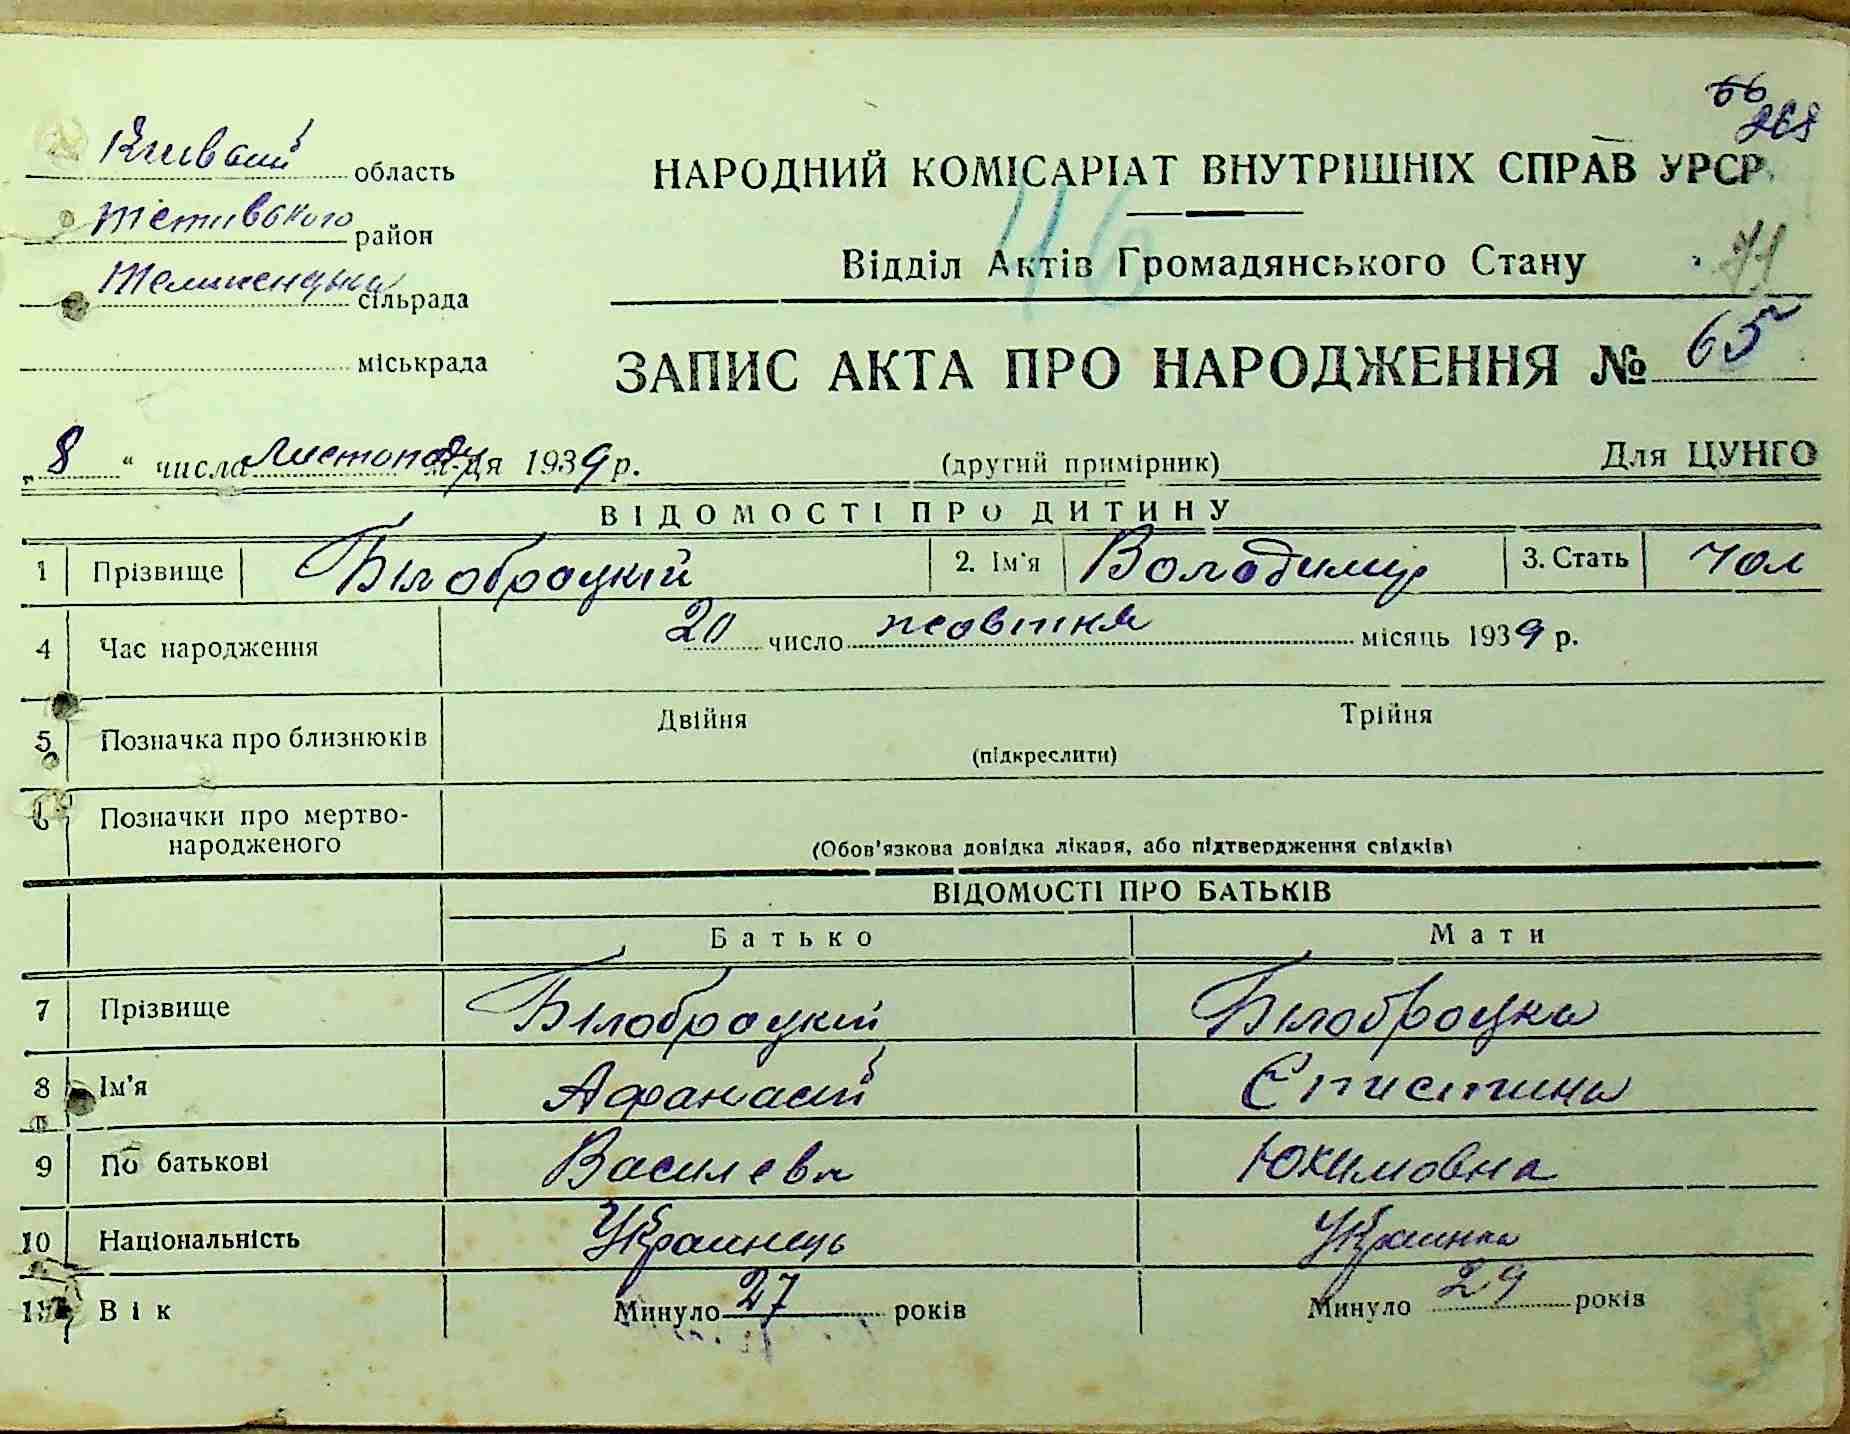 66
268
Київській область
НАРОДНИЙ КОМІСАРІАТ ВНУТРІШНІХ СПРАВ УРСР
Тетивського район
46
Відділ Актів Громадянського Стану
71
сільрада
міськрада
ЗАПИС АКТА ПРО НАРОДЖЕННЯ № 65
„8“ числа листопаду м-ця 1939 р.
(другий примірник)
Для ЦУНГО
ВІДОМОСТІ ПРО ДИТИНУ
1 Прізвище Білобрацкій 2. Ім'я Володимир 3. Стать чол
4 Час народження 20 число жовтня місяць 1939 р.
5 Позначка про близнюків Двійня Трійня
(підкреслити)
6 Позначки про мертво-
народженого
(Обов'язкова довідка лікаря, або підтвердження свідків)
ВІДОМОСТІ ПРО БАТЬКІВ
Батько Мати
7 Прізвище Білобрацкій Білобрацка
8 Ім'я Афанасій Єпистина
9 По батькові Васильевич Юхимовна
10 Національність Украинець Украинка
11 Вік Минуло 27 років Минуло 29 років